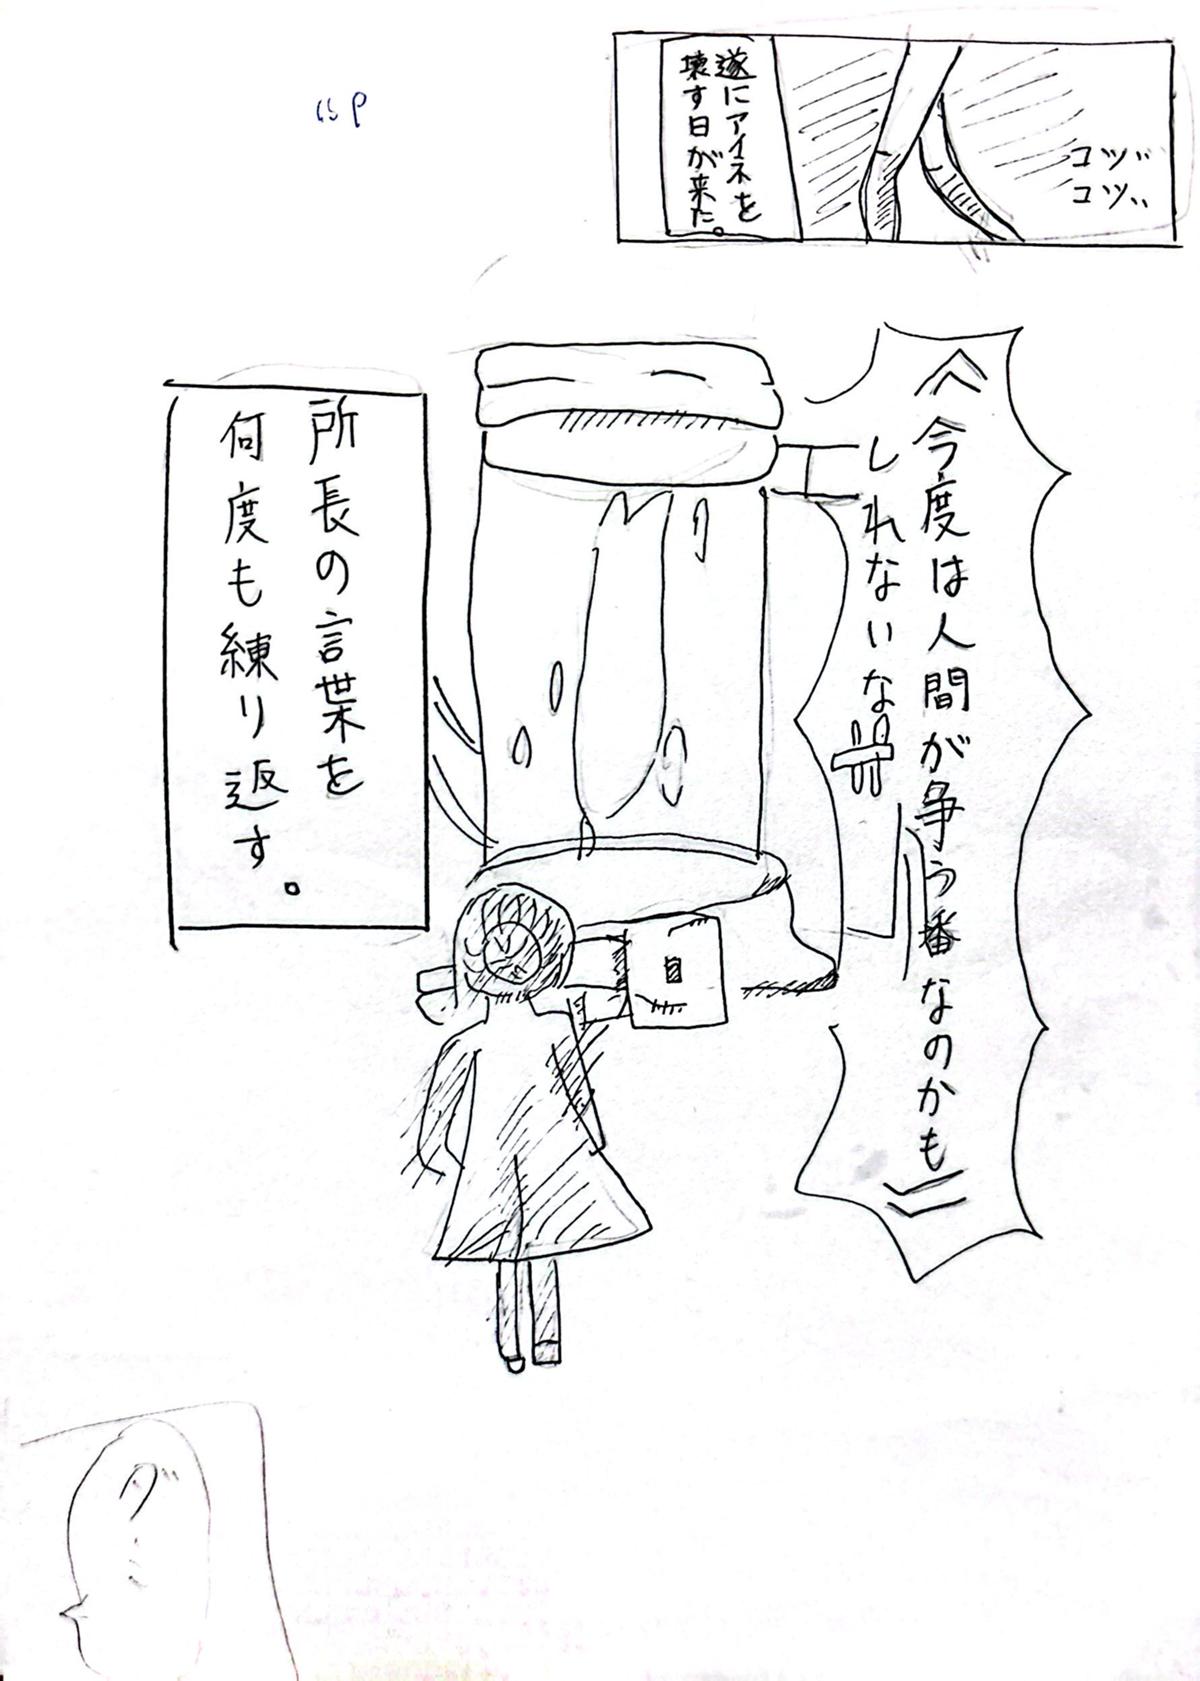 コツ…
コツ…
遂にアイネを
壊す日が来た。
《今度は人間が争う番なのかも》
しれないな
所長の言葉を
何度も練り返す。
グ…